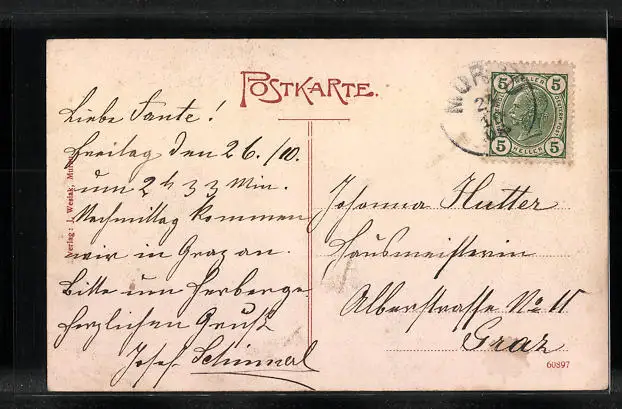 POSTKARTE.
MUR
5 5
HELLER
5 5
Liebe Tante!
Freitag den 26./10.
um 2 h 33 Min.
Nachmittag kommen
wir in Graz an.
Bitte um Herberge
Herzlichen Gruß
Josef Schimmel
Verlag: J. Westak,
Johanna Hutter
Hausmeisterin
Alberstrasse No 11
Graz
60897